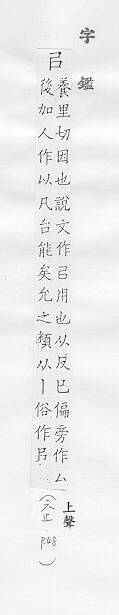 字鑑
㠯
養里切因也說文作㠯用也从反巳偏旁作厶
後加人作以凡台能矣允之類从丨俗作㠯…
上聲
(六止 P.48)